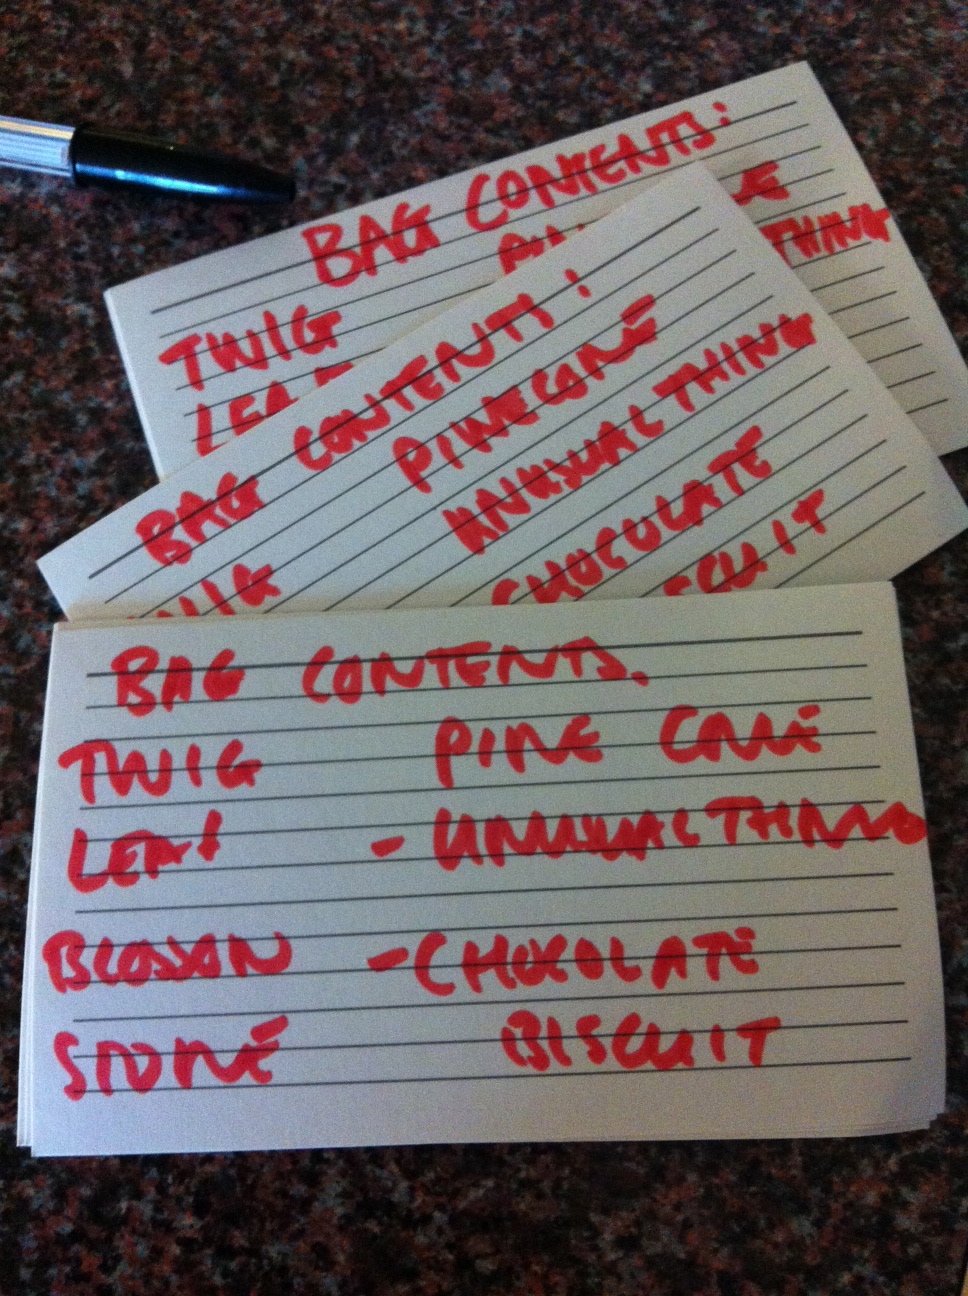 BAG CONTENTS:
TWIG
THING
BAG CONTENTS:
PINECONE
UNUSUAL THING
CHOCOLATE
BAG CONTENTS.
TWIG PINE CONE
LEAF - UNUSUAL THING
BLOSSOM - CHOCOLATE
STONE BISCUIT